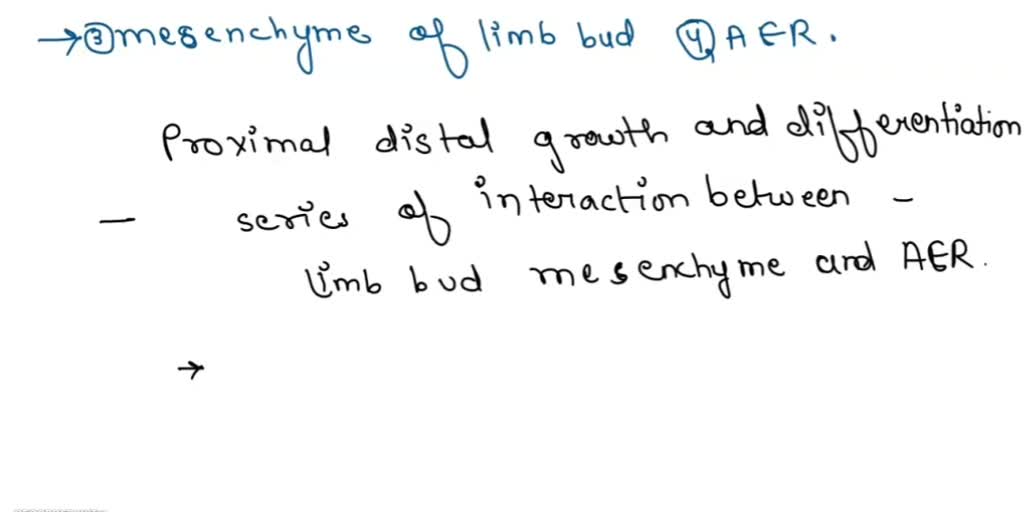 → ③ mesenchyme of limb bud ④ AER.
Proximal distal growth and differentiation
— series of interaction between –
limb bud mesenchyme and AER.
→